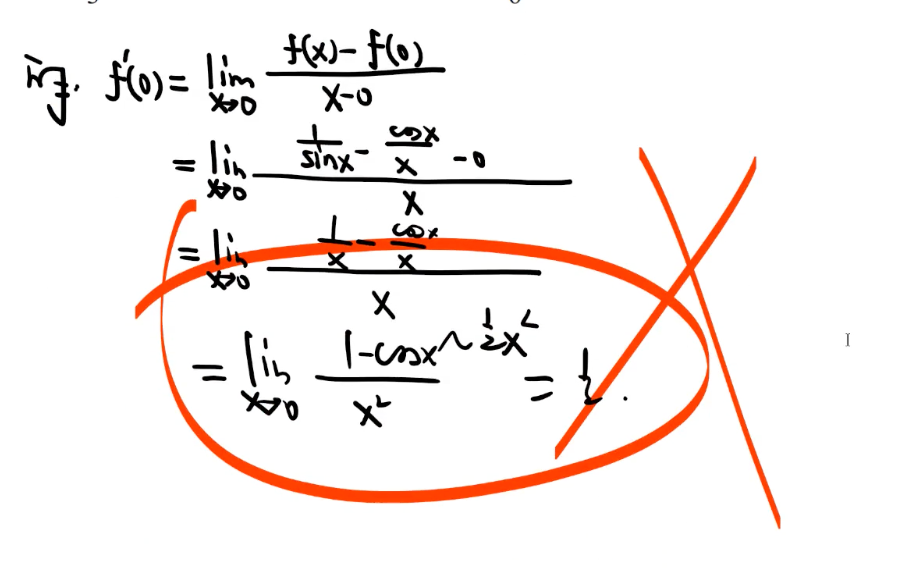 f'(0) = lim x→0 (f(x) - f(0)) / (x-0)
= lim x→0 (1/sinx - cosx/x - 0) / x
= lim x→0 (1/x - cosx/x) / x
= lim x→0 (1-cosx ~ 1/2 x²) / x² = 1/2 .